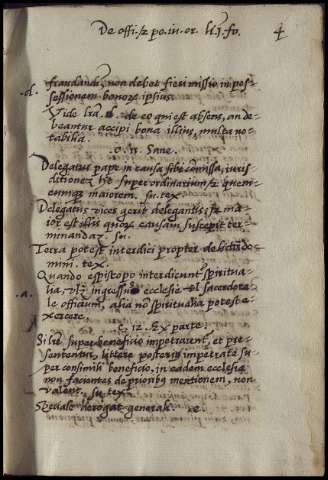 De offi. & po. iu. or. li. j. fo. 4
.d. fraudandi, non debet fieri missio in pos-
sessionem bonorum ipsius.
Vide lra. de eo qui est absens, an de-
beantur accipi bona illius, multa no-
tabilia.
.c. 11. Sane.
Delegatus pape in causa sibi comissa, iuris
ditionem super ordinarium & quem-
cumque maiorem. su. tex.
Delegatus vices gerit delegantis, & ma-
ior est illis quorum causam suscepit ter-
minandaz. su.
Terra potest interdici propter delictu do-
mini. tex.
Quando espiscopo interdicunt spiritua-
.a. lia, ingressus ecclesie et sacerdota-
le officium, alia non spiritualia potest e-
xercere.
c. 12. Ex parte.
Si super beneficio impetrarent, et pre-
sententur, littere posterius impetrate su-
per consimili beneficio, in eadem ecclesia
non facientes de prioribus mentionem, non
valent. su. tex.
Speciale derogat generali.